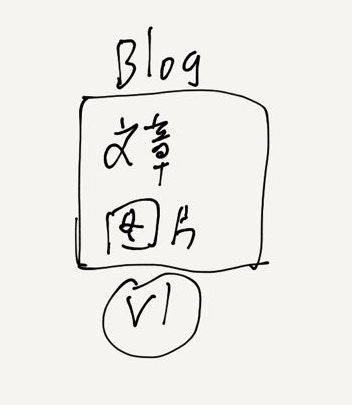 Blog
文章
图片
V1